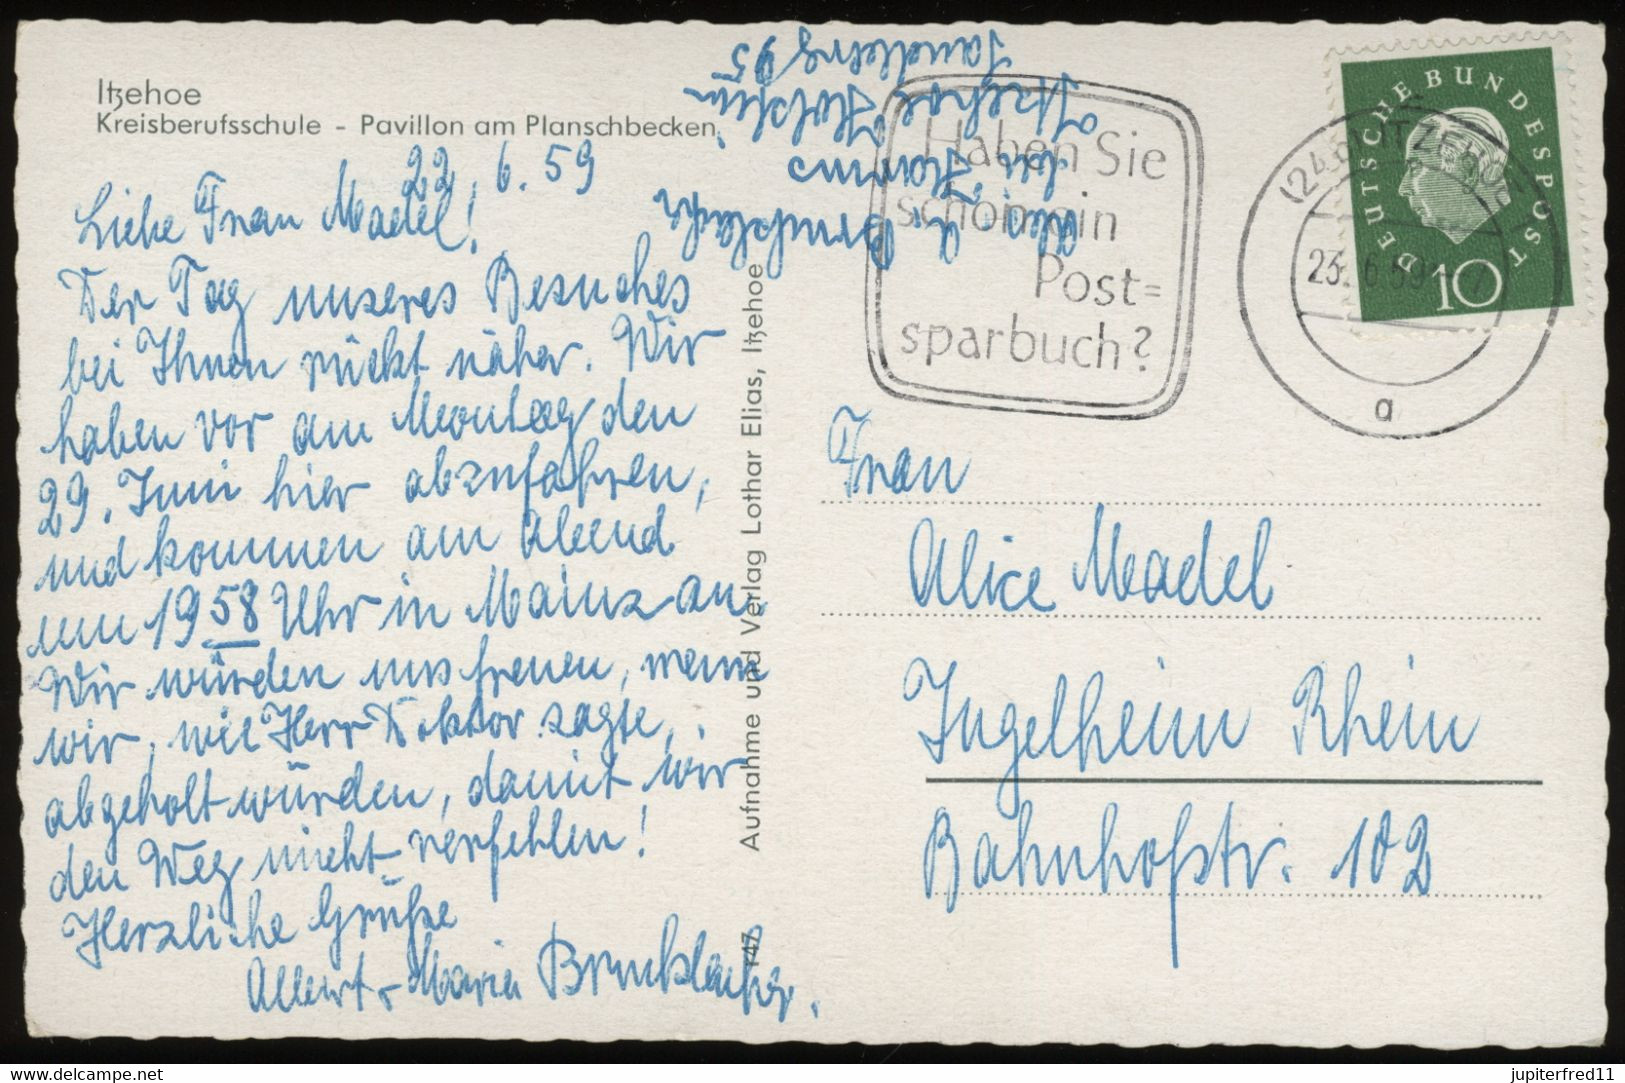 Itzehoe
Kreisberufsschule - Pavillon am Planschbecken
22. 6. 59
Liebe Frau Madel!
Der Tag unseres Besuches
bei Ihnen rückt näher. Wir
haben vor am Montag den
29. Juni hier abzufahren,
und kommen am Abend
um 19 58 Uhr in Mainz an.
Wir würden uns freuen, wenn
wir, wie Herr Doktor sagte,
abgeholt würden, damit wir
den Weg nicht verfehlen!
Herzliche Grüße
Albert + Maria
Aufnahme und Verlag Lothar Elias, Itzehoe
147
Itzehoe Holstein
95
Haben Sie
schon ein
Post=
sparbuch?
(24b) ITZEHOE
23.6.59
a
DEUTSCHE BUNDESPOST
10
Frau
Alice Madel
Ingelheim Rhein
Bahnhofstr. 102
www.delcampe.net
jupiterfred11